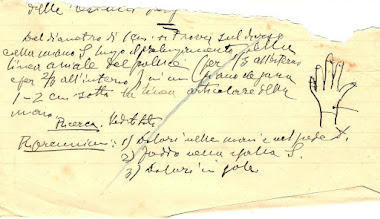 delle
Del diametro di 1 cm. si trova sul dorso
della mano S. lungo il prolungamento della
linea assiale del pollice (per 1/3 all'esterno
e per 2/3 all'interno) in un piano
1-2 cm sotto la linea articolare della
mano.
Ricerca.
1) Dolori nelle mani e nel piede D.
2) nella spalla S.
3) Dolori in gola